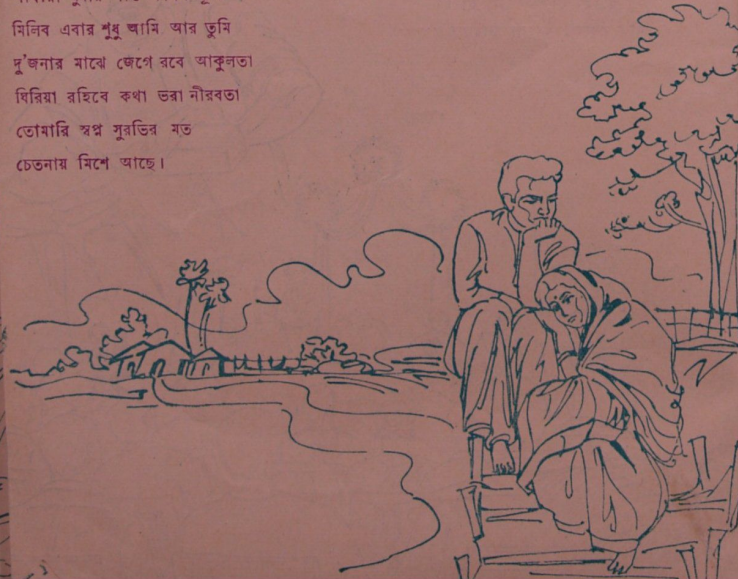 মিলিব এবার শুধু আমি আর তুমি
দু'জনার মাঝে জেগে রবে আকুলতা
ঘিরিয়া রহিবে কথা ভরা নীরবতা
তোমারি স্বপ্ন সুরভির মত
চেতনায় মিশে আছে।